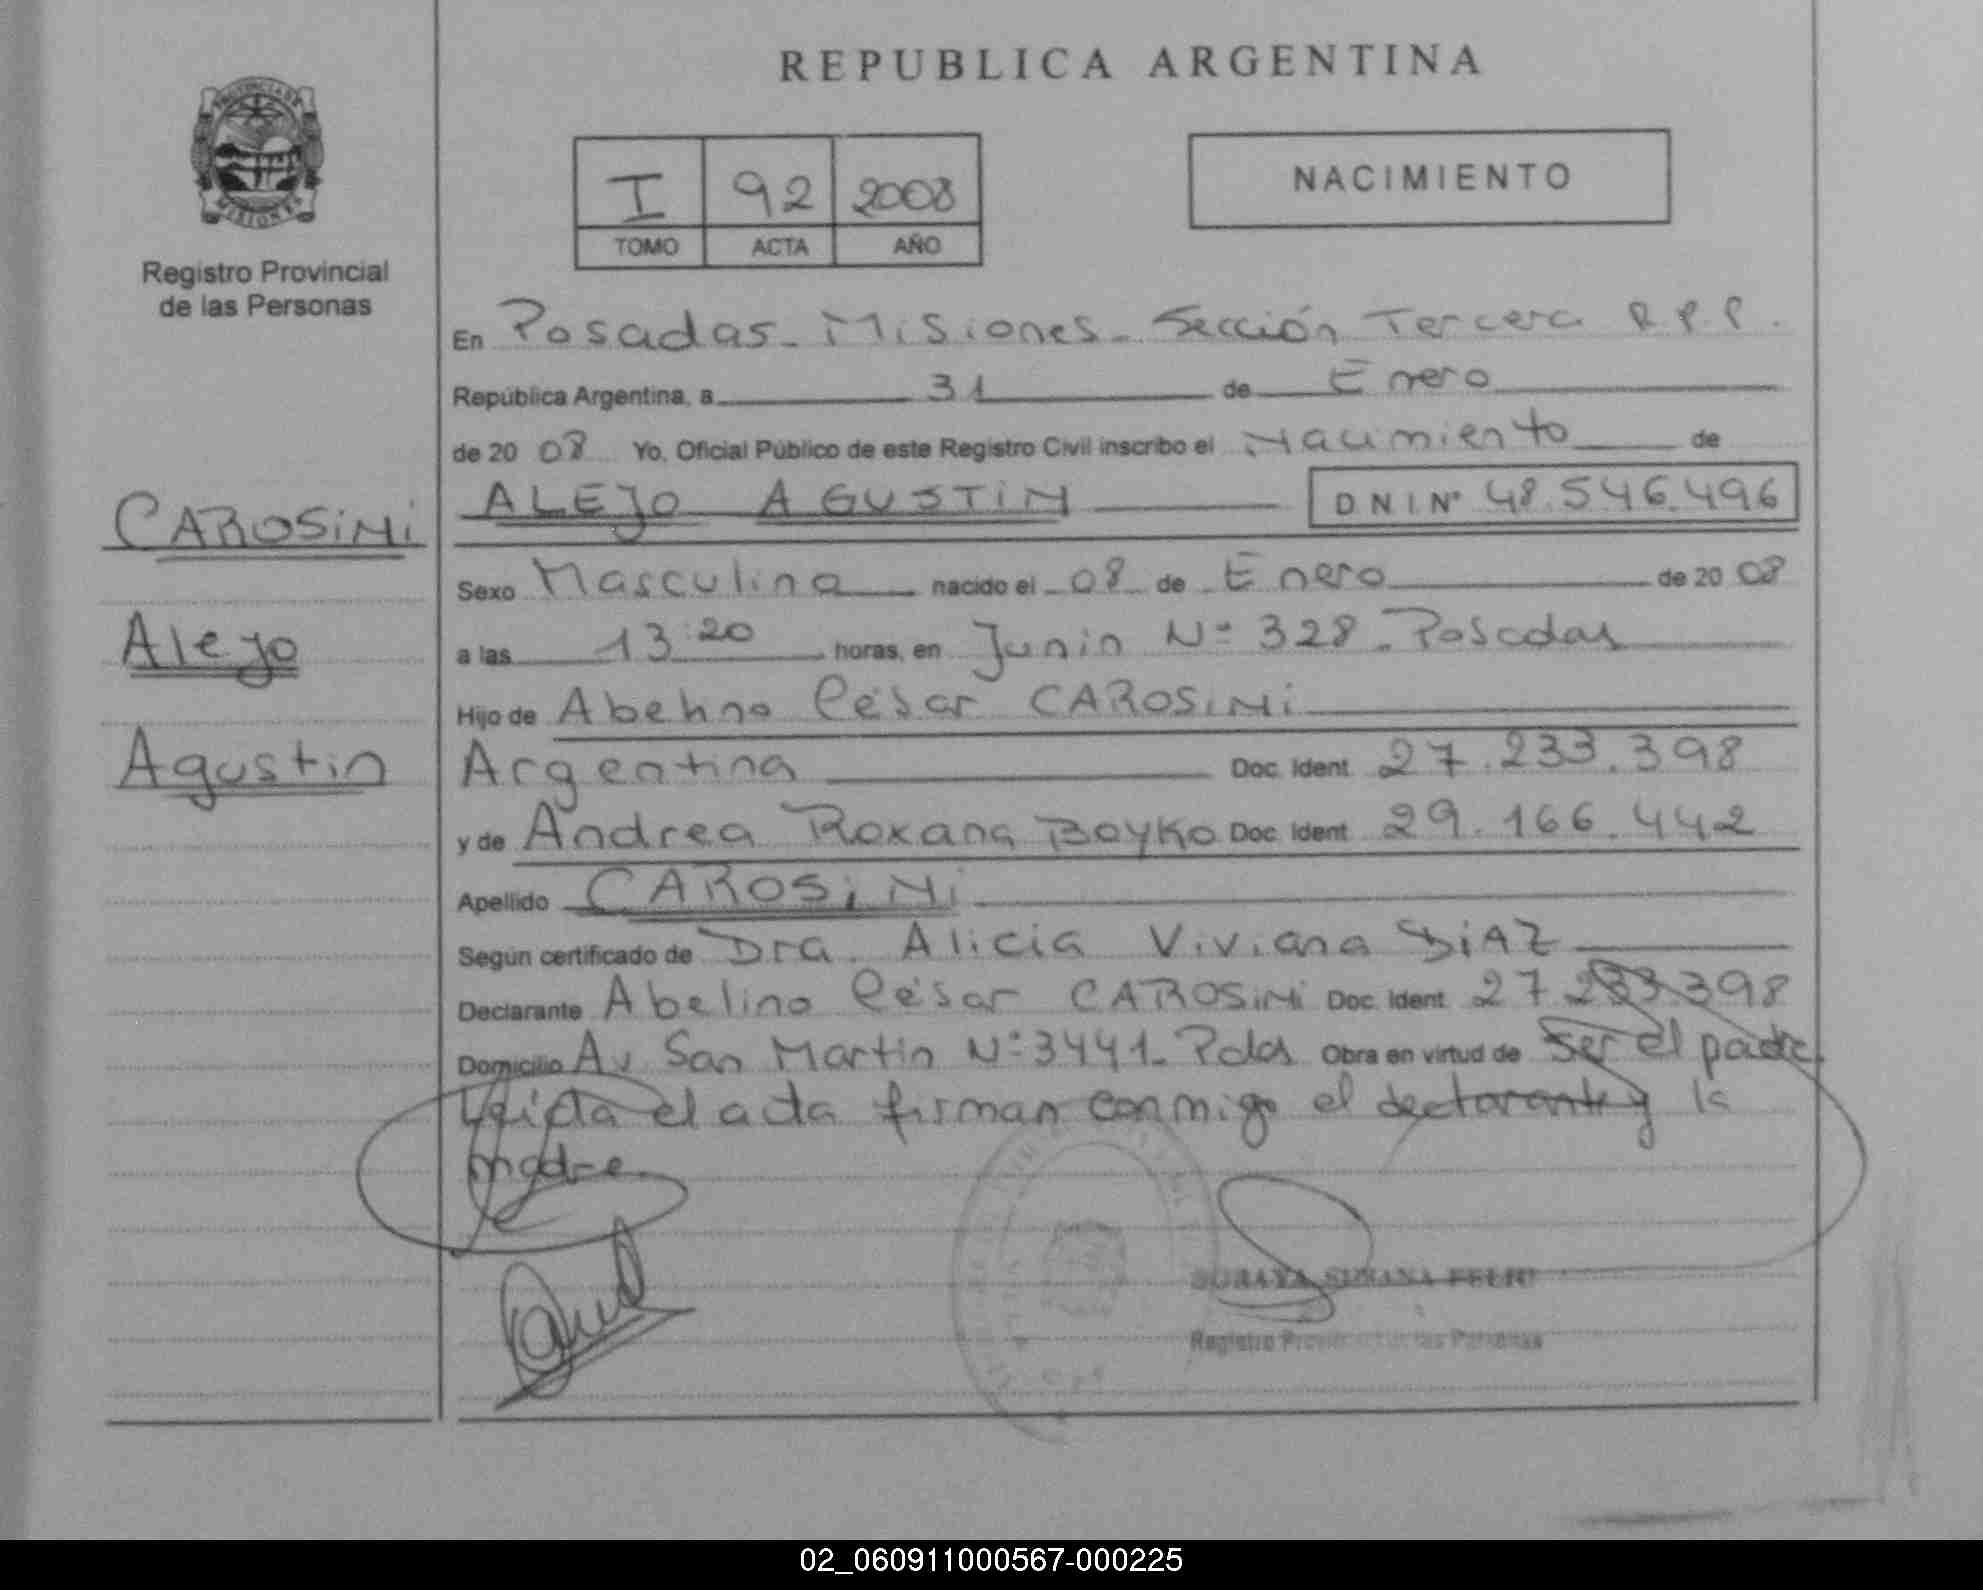 REPUBLICA ARGENTINA
PROVINCIA DE
MISIONES
Registro Provincial
de las Personas
I 92 2008
TOMO ACTA AÑO
NACIMIENTO
En Posadas - Misiones - Sección Tercera R.P.P.
República Argentina, a 31 de Enero
de 20 08 Yo, Oficial Público de este Registro Civil inscribo el Nacimiento de
ALEJO AGUSTIN D N I Nº 48.546.496
CAROSINI
Alejo
Agustin
Sexo Masculino nacido el 08 de Enero de 20 08
a las 13:20 horas, en Junin Nº 328 - Posadas
Hijo de Abelino César CAROSINI
Argentina Doc. Ident 27.233.398
y de Andrea Roxana BOYKO Doc. Ident 29.166.442
Apellido CAROSINI
Según certificado de Dra. Alicia Viviana DIAZ
Declarante Abelino César CAROSINI Doc. Ident 27.233.398
Domicilio Av San Martin Nº 3441 - Pdas Obra en virtud de Ser el padre
Leida el acta firman conmigo el declarante y la
madre
SORAYA SUSANA
Registro Provincial de las Personas
02_060911000567-000225